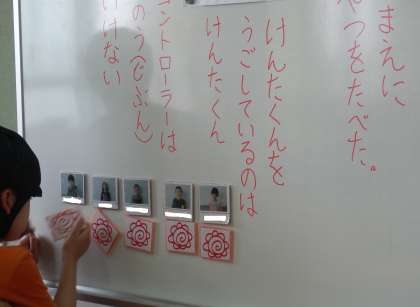 まえに
やつをたべた。
けんたくんを
うごしているのは
けんたくん
コントローラーは
のう(じぶん)
いけない